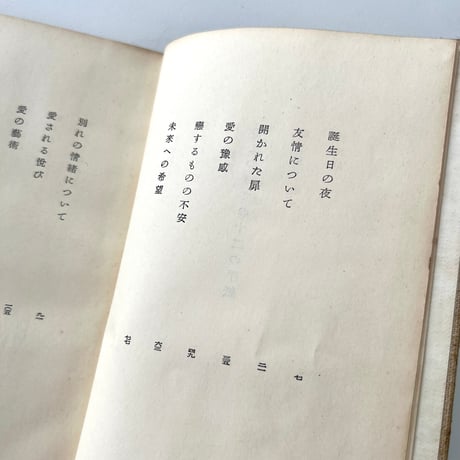 誕生日の夜
友情について
開かれた扉
愛の豫感
戀するものの不安
未來への希望
七
二一
三五
四九
六三
七七
別れの情緒について
愛される悅び
愛の藝術
九一
一〇五